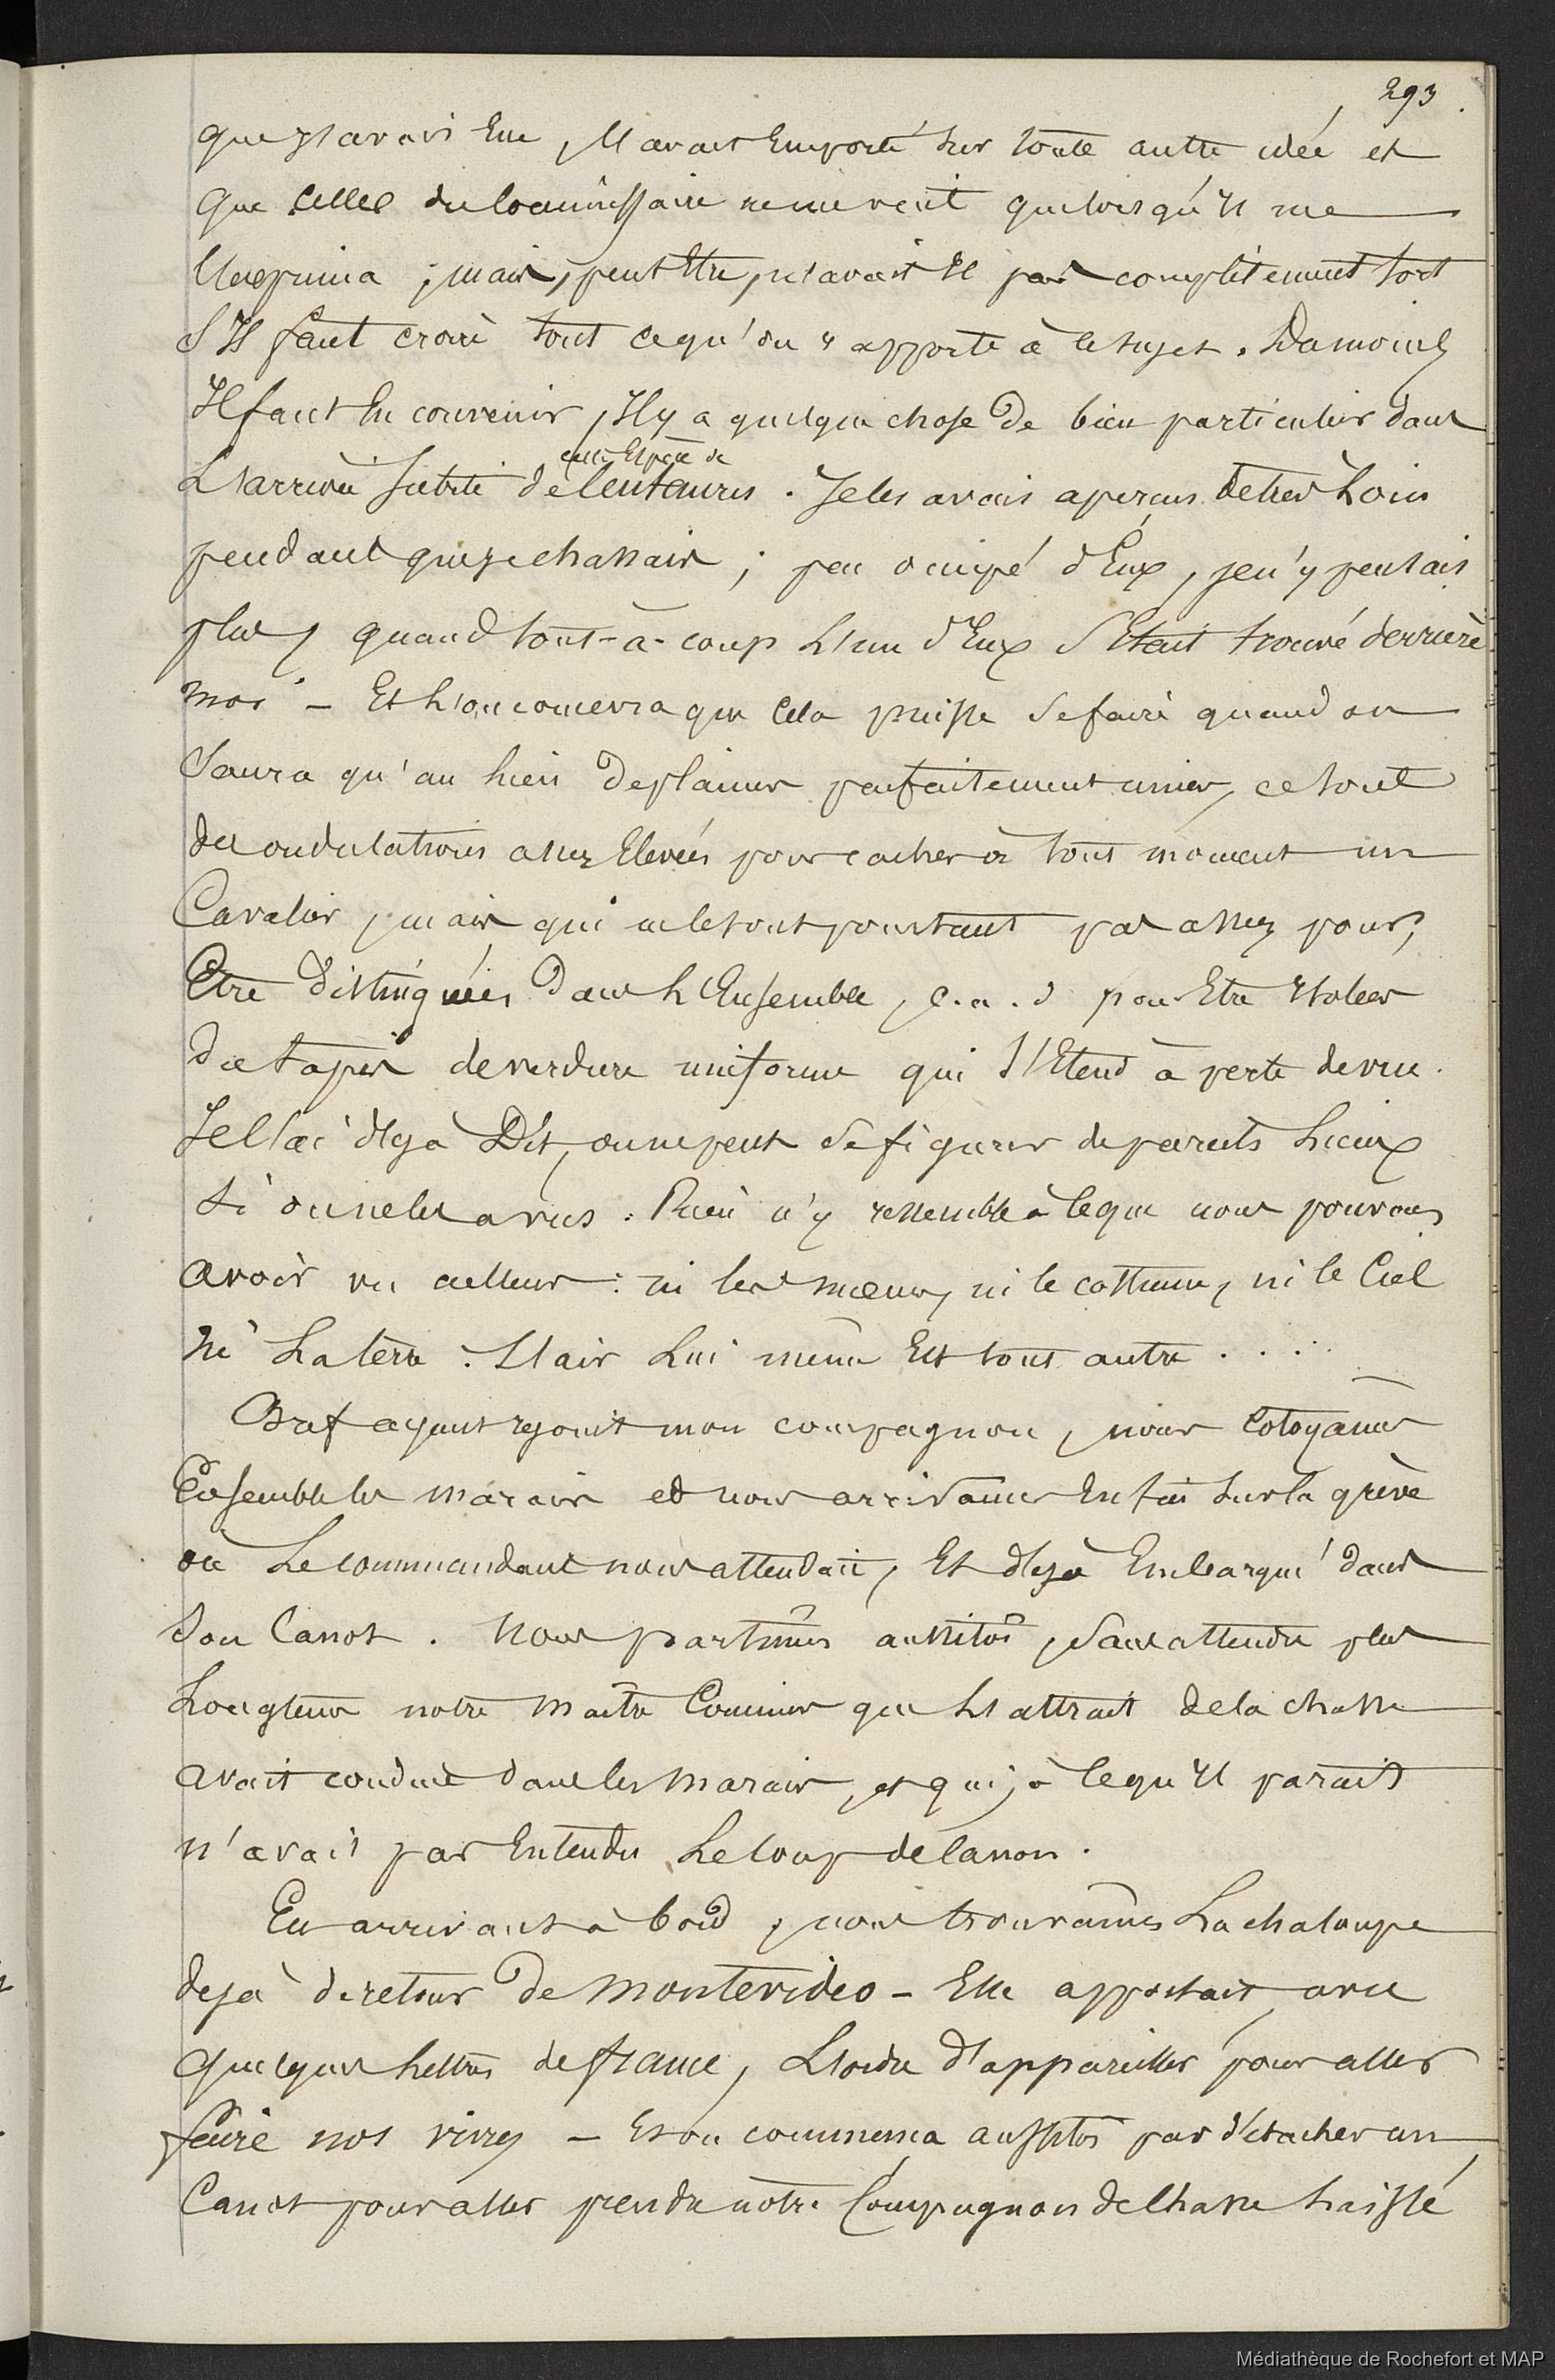 293.
que j'avais eue, l'avait emporté sur toute autre idée et
que celle du commissaire ne me vint que lorsqu'il me
l'exprima ; mais, peut être, n'avait il pas complètement tort
s'il faut croire tout ce qu'on rapporte à ce sujet. Du moins
Il faut en convenir, Il y a quelque chose de bien particulier dans
cette Espèce de
L'arrivée subite de Centaures. Je les avais aperçus de très Loin
pendant que je chassais ; peu occupé d'Eux, je n'y pensais
plus, quand tout-à-coup L'un d'Eux s'était trouvé derrière
moi — Et L'on concevra que Cela puisse se faire quand on
saura qu'au lieu de plaines parfaitement unies, ce sont
des ondulations assez Elevées pour cacher à tout moment un
Cavalier, mais qui ne le sont pourtant pas assez pour,
Etre distinguées dans L'Ensemble, c.a.d pour Etre isolées
du tapis de verdure uniforme qui s'Etend à perte de vue.
Je l'ai déjà Dit, on ne peut se figurer de pareils Lieux
si on ne les a vus. Rien n'y ressemble à ce que nous pouvons
avoir vu ailleurs : ni les mœurs, ni le costume, ni le Ciel
ni La terre. L'air Lui même Est tout autre . . . .
Bref ayant rejoint mon compagnon, nous Cotoyâmes
Ensemble les marais et nous arrivâmes Enfin sur la grève
où Le commandant nous attendait, Et déjà Embarqué dans
son Canot. Nous partîmes aussitôt, sans attendre plus
Longtems notre maître Commis que L'attrait de la chasse
avait conduit dans les marais, et qui, à ce qu'il parait
n'avait pas Entendu Le coup de canon.
En arrivant à bord, nous trouvâmes La chaloupe
dejà de retour de Montevideo — Elle apportait, avec
quelques Lettres de france, L'ordre d'appareiller pour aller
faire nos vivres — Et on commença aussitôt par détacher un
Canot pour aller prendre notre Compagnon de Chasse Laissé
Médiathèque de Rochefort et MAP